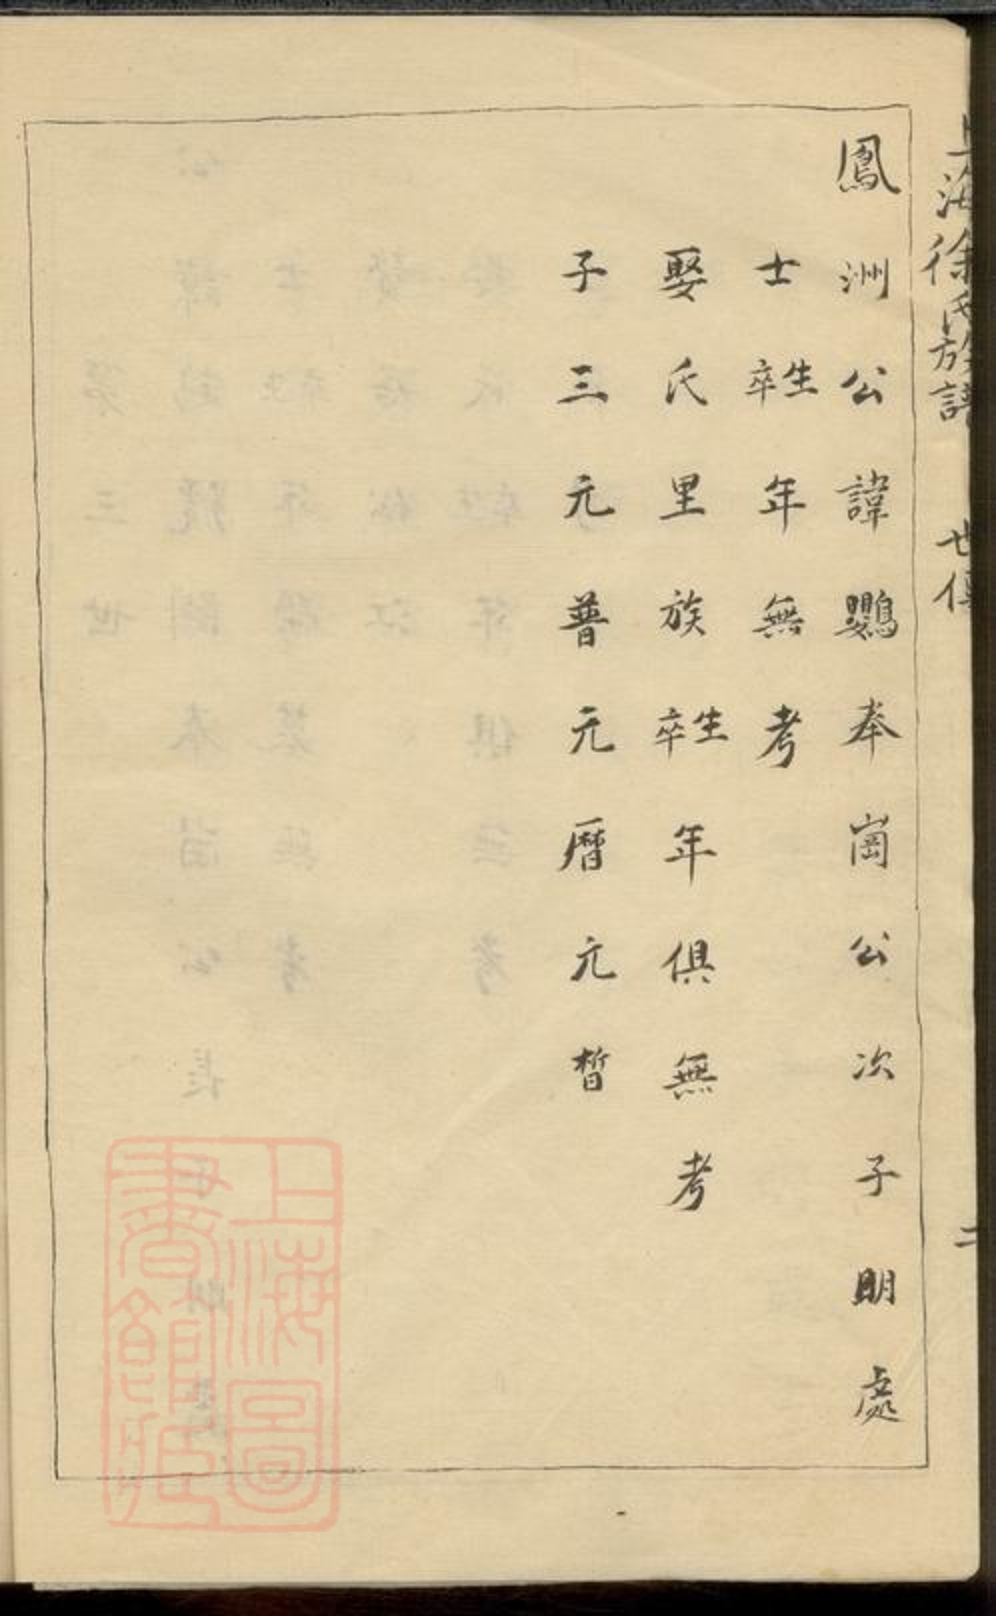 上海徐氏族譜 世傳 二
鳳洲公諱鸚奉崗公次子明處
士生卒年無考
娶氏里族生卒年俱無考
子三元普元曆元晳
上海圖書館藏